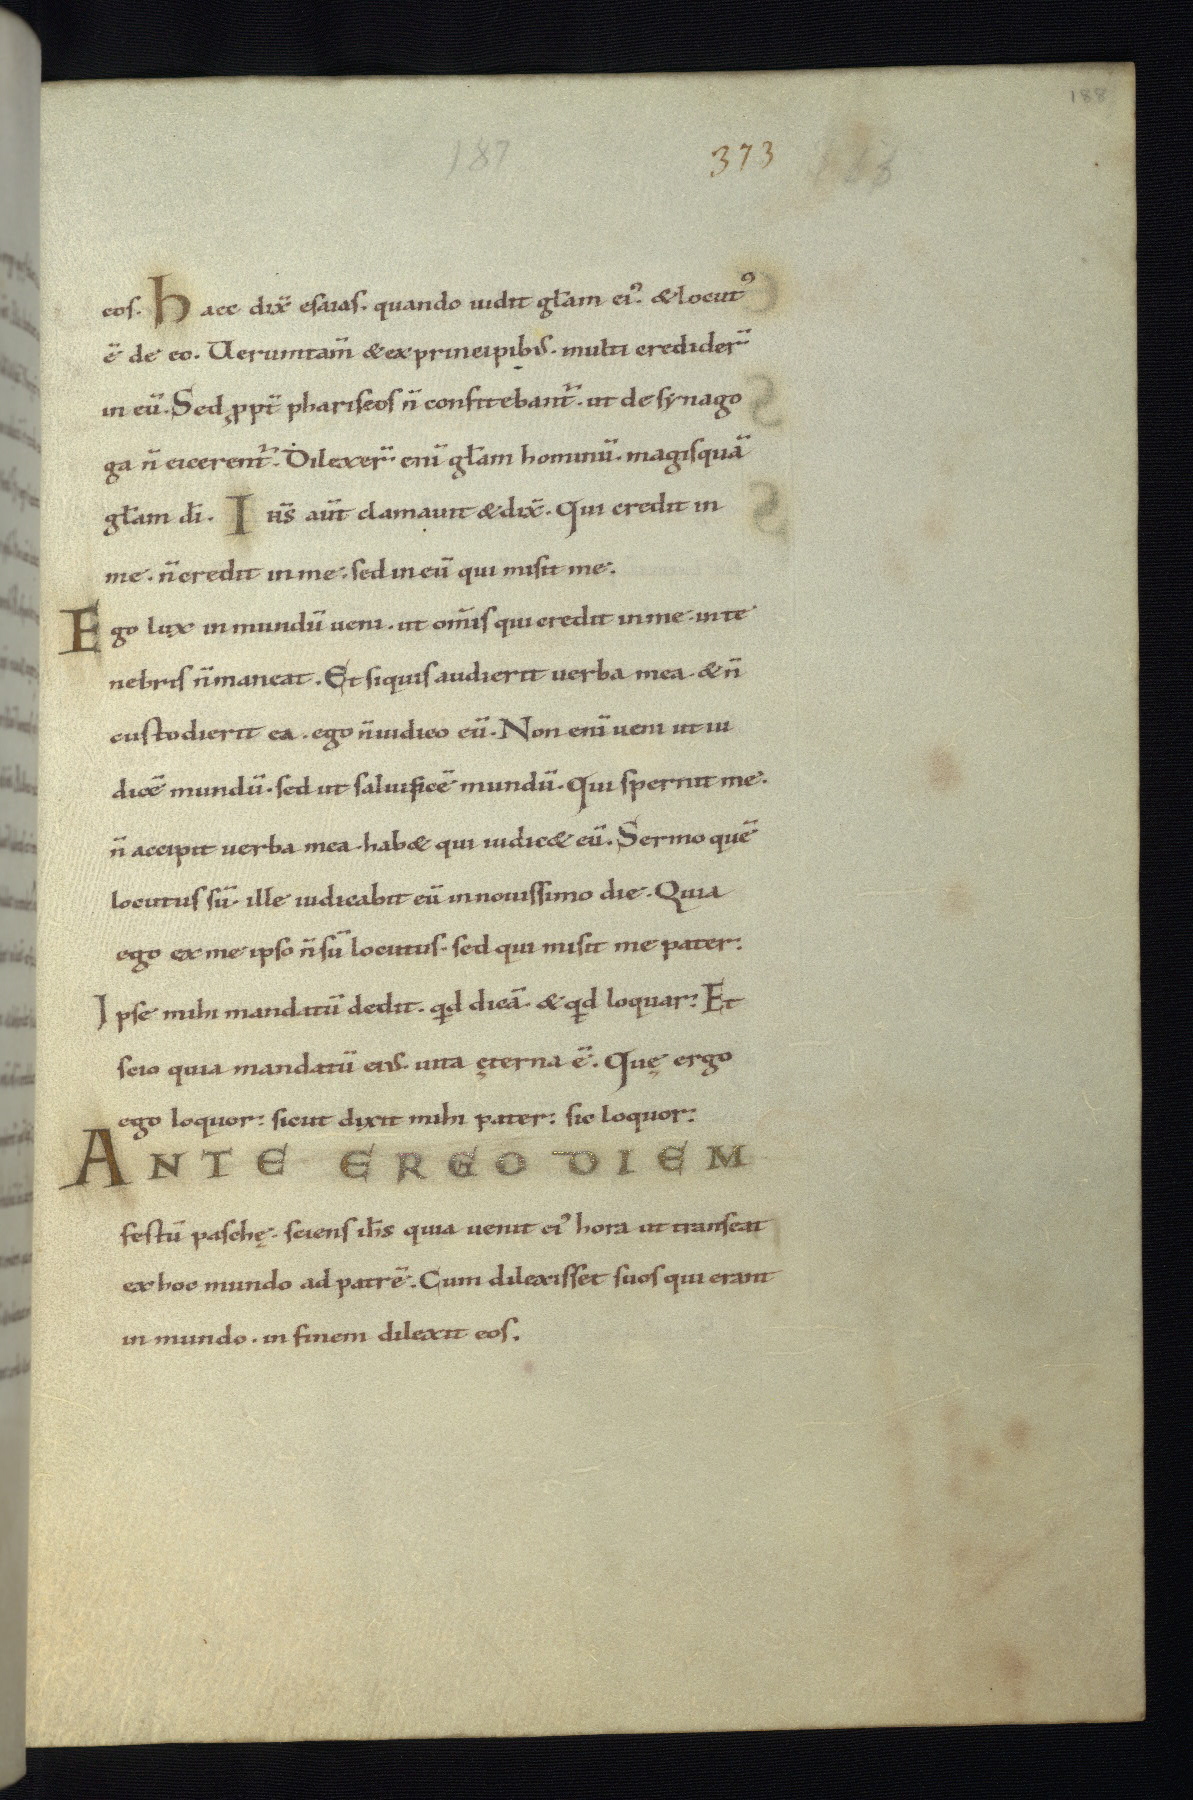 188
187 373
eos. Haec dix̄ esaias. quando uidit gl̄am ei᾽. & locut᾽
ē de eo. Ueruntam̄ & ex principib; multi credider̄
in eū. Sed ꝓpt̄ phariseos n̄ confitebant̄. ut de synago
ga n̄ eicerent̄. Dilexer̄ eni̅ gl̄am hominū. magis quā
gl̄am dī. Iħs aūt clamauit & dix̄. Qui credit in
me. n̄ credit in me. sed in eū qui misit me.
Ego lux in mundū ueni. ut om̄is qui credit in me. in te
nebris n̄ maneat. Et siquis audierit uerba mea. & n̄
custodierit ea. ego n̄ iudico eū. Non eni̅ ueni ut iu
dicē mundū. sed ut saluificē mundū. Qui spernit me.
n̄ accipit uerba mea. hab& qui iudic& eū. Sermo quē
locutus sū. ille iudicabit eū in nouissimo die. Quia
ego ex me ipso n̄ sū locutus. sed qui misit me pater:
Ipse mihi mandatū dedit. qd dicā. & qd loquar: Et
scio quia mandatū eius. uita ęterna ē. Quę ergo
ego loquor: sicut dixit mihi pater: sic loquor:
ANTE ERGO DIEM
festū paschę. sciens ih̄s quia uenit ei᾽ hora ut transeat
ex hoc mundo ad patrē. Cum dilexisset suos qui erant
in mundo. in finem dilexit eos.